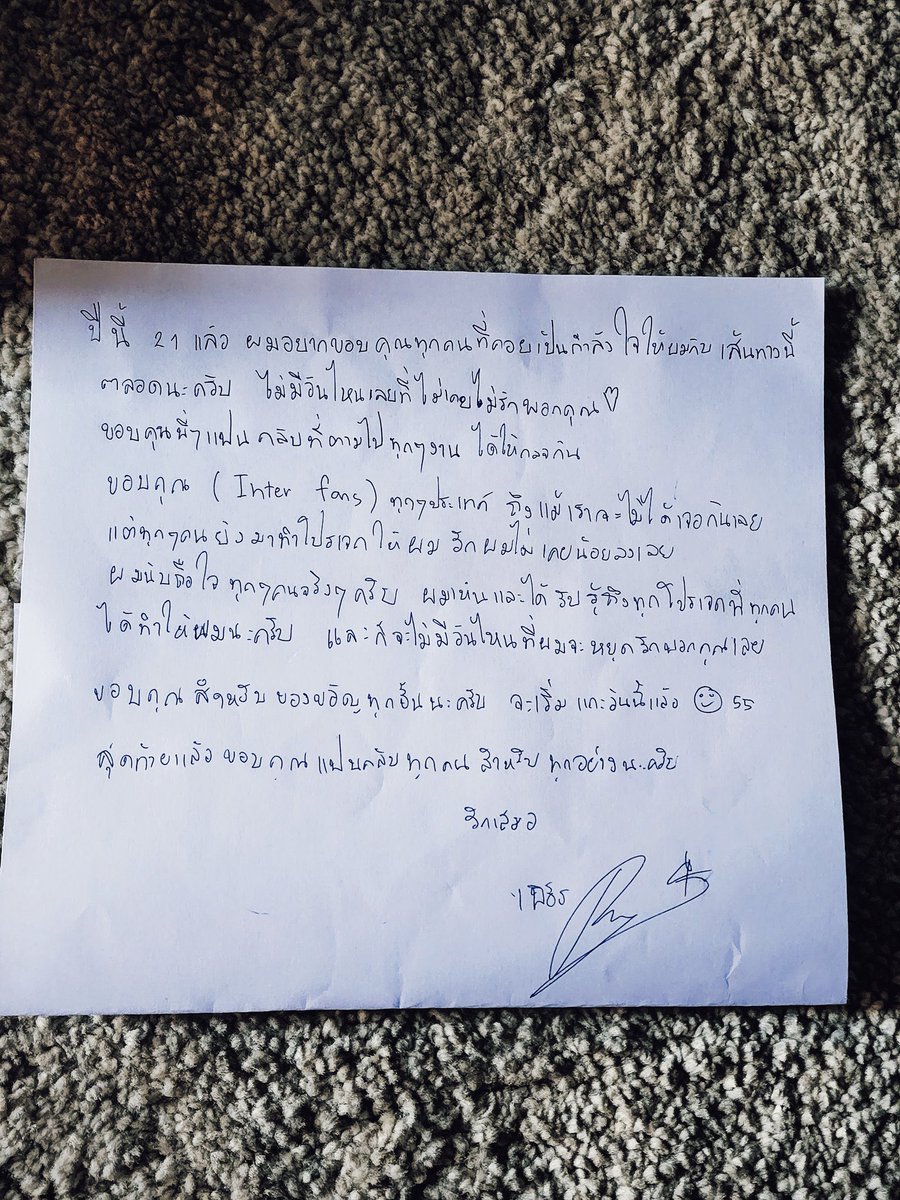 ปีนี้ 21 แล้ว ผมอยากขอบคุณทุกคนที่คอยเป็นกำลังใจให้ผมกับเส้นทางนี้
ตลอดนะครับ ไม่มีวันไหนเลยที่ไม่เคยไม่รักพวกคุณ♡
ขอบคุณพี่ๆแฟนคลับที่ตามไปทุกๆงาน ได้ให้กอดกัน
ขอบคุณ (Inter fans) ทุกๆประเทศ ถึงแม้เราจะไม่ได้เจอกันเลย
แต่ทุกๆคนยังมาทำโปรเจกให้ผม รักผมไม่เคยน้อยลงเลย
ผมนับถือใจทุกๆคนจริงๆครับ ผมเห็นและได้รับรู้ถึงทุกโปรเจกที่ทุกคน
ได้ทำให้ผมนะครับ และก็จะไม่มีวันไหนที่ผมจะหยุดรักพวกคุณเลย
ขอบคุณสำหรับของขวัญทุกชิ้นนะครับ จะเริ่มแกะวันนี้แล้ว ☺ 55
สุดท้ายแล้วขอบคุณแฟนคลับทุกคนสำหรับทุกอย่างนะครับ
รักเสมอ